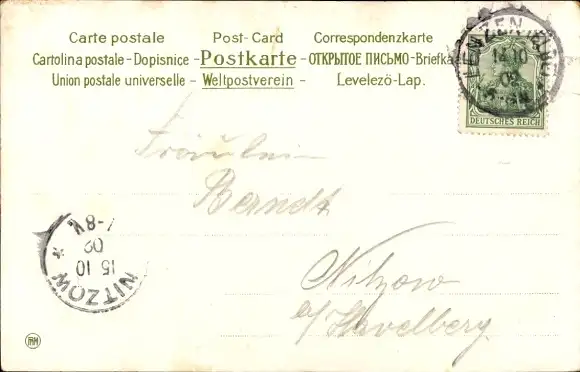 Carte postale Post-Card Correspondenzkarte
Cartolina postale - Dopisnice - Postkarte - ОТКРЫТОЕ ПИСЬМО - Briefka
Union postale universelle - Weltpostverein - Levelező-Lap.
LENZEN
14 10
09
DEUTSCHES REICH
Fräulein
Berndt
Nitzow
a/Havelberg
NITZOW
15 10
09
7-8V